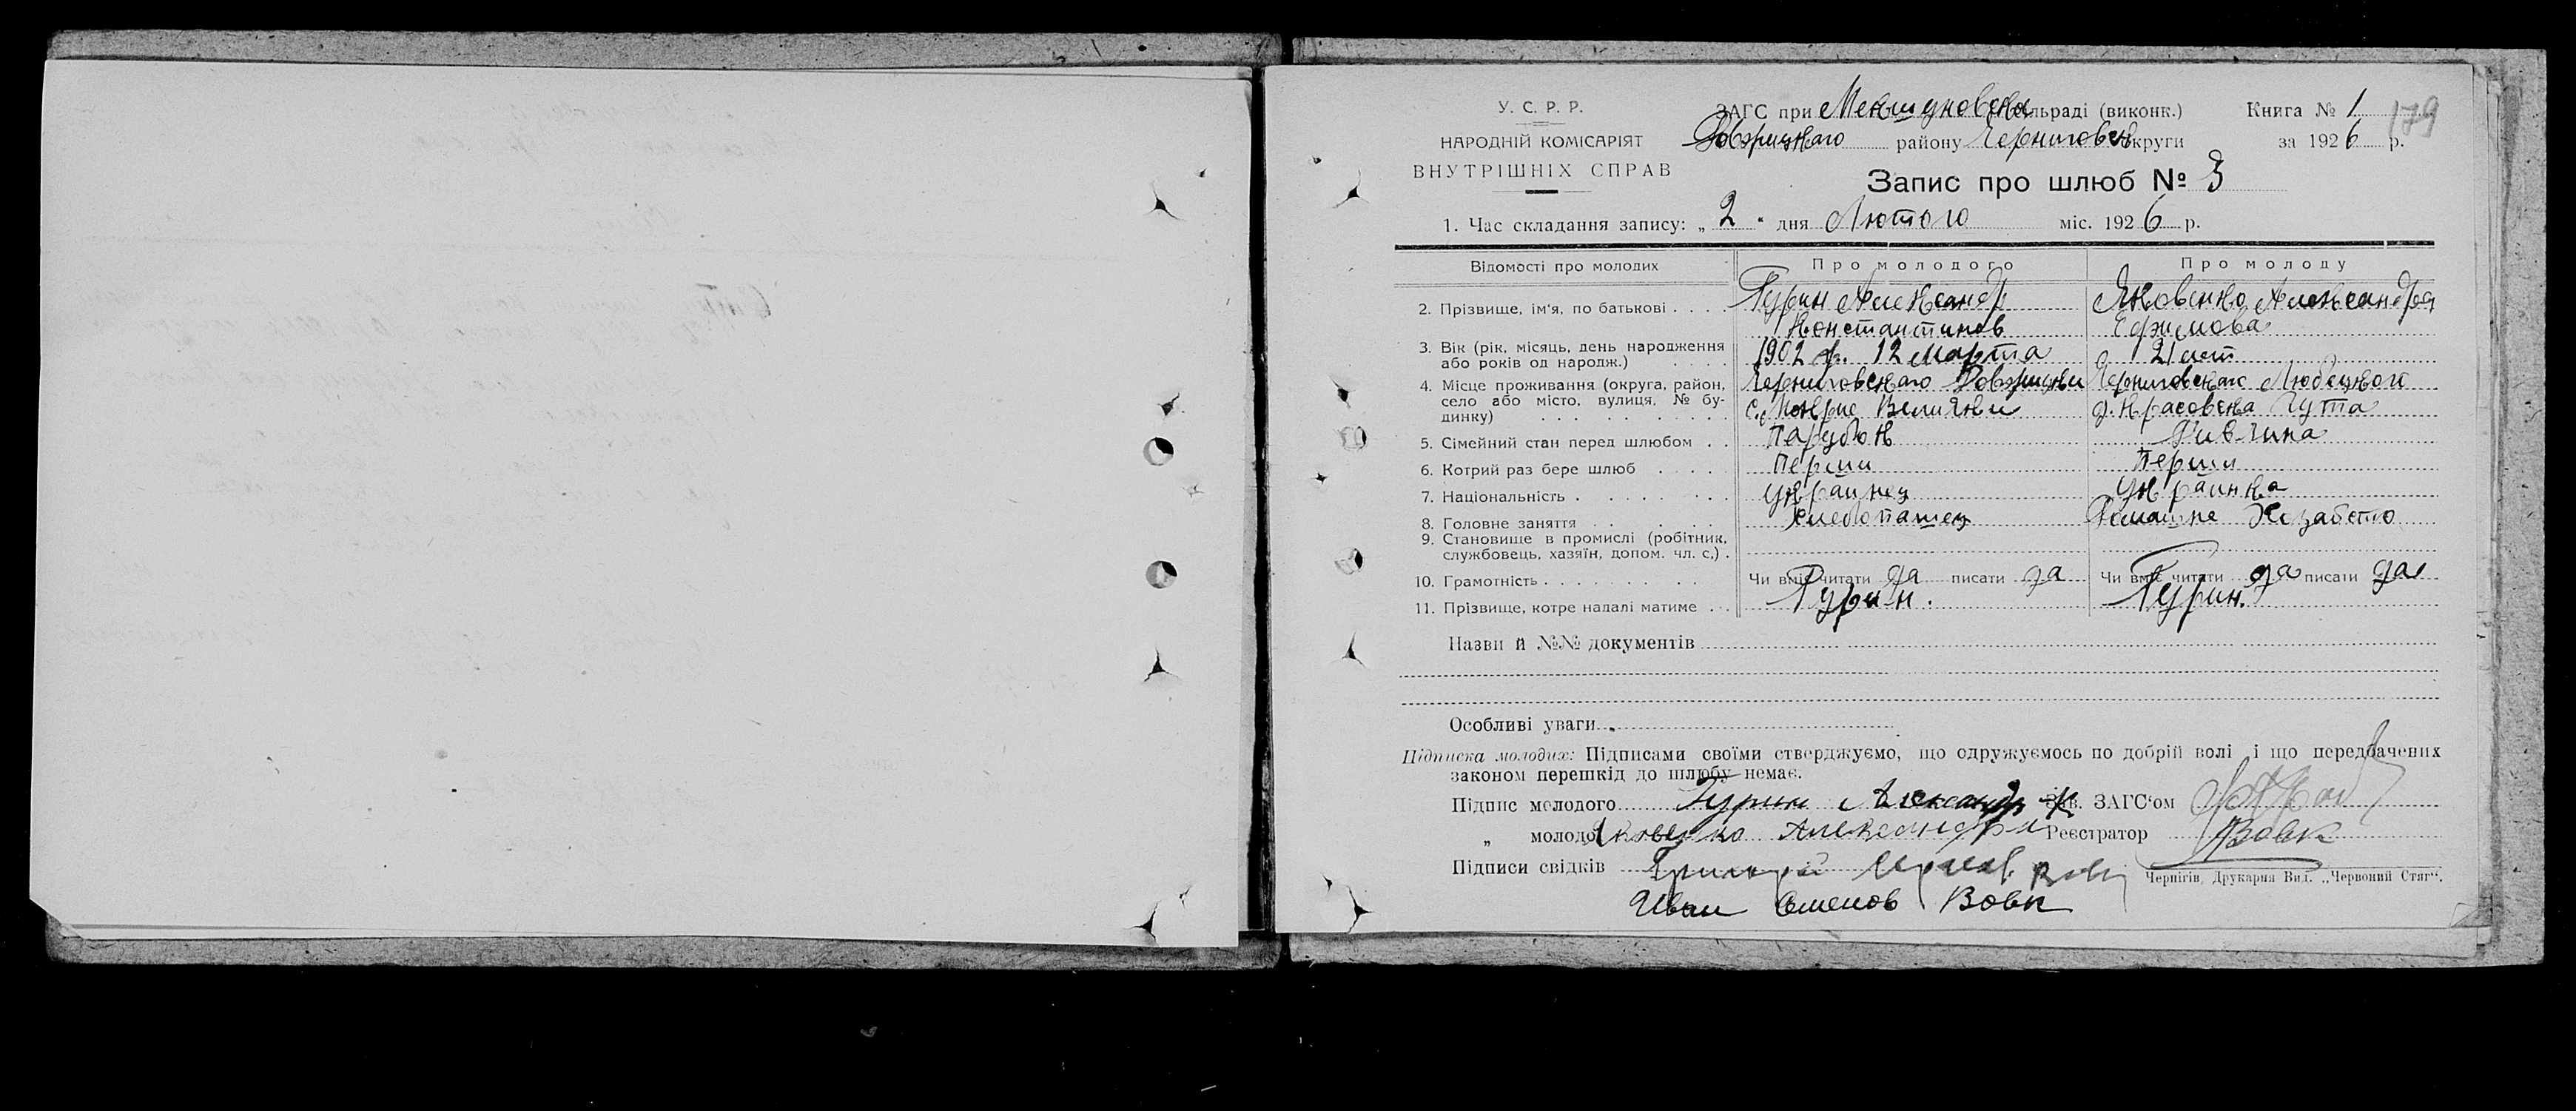 У. С. Р. Р.
НАРОДНІЙ КОМІСАРІЯТ
ВНУТРІШНІХ СПРАВ
ЗАГС при сільраді (виконк.)
району Черниговск округи
Книга № 1 179
за 1926 р.
Запис про шлюб № 3
1. Час складання запису: „ 2 “ дня Лютого міс. 1926 р.
Відомості про молодих Про молодого Про молоду
2. Прізвище, ім'я, по батькові . . . Гурин Александр Константинов Яковенко Александра Ефимова
3. Вік (рік, місяць, день народження або років од народж.) . . . 1902 г. 12 Марта 21 лет
4. Місце проживання (округа, район, село або місто, вулиця, № будинку) . . . Черниговскаго с. Мокрие Велички Черниговскаго Любецкой д. Красовска Гута
5. Сімейний стан перед шлюбом . . Парубок Дивчина
6. Котрий раз бере шлюб . . . Перши Перши
7. Національність . . . . . . . Украинец Украинка
8. Головне заняття . . . . . Хлебопашец Домашне Хозабство
9. Становище в промислі (робітник, службовець, хазяїн, допом. чл. с.) .
10. Грамотність . . . . . . . Чи вміє читати да писати да Чи вміє читати да писати да
11. Прізвище, котре надалі матиме . . . Гурин. Гурин.
Назви й №№ документів
Особливі уваги
Підписка молодих: Підписами своїми стверджуємо, що одружуємось по добрій волі і що передбачених
законом перешкід до шлюбу немає.
Підпис молодого Гурин Александр К Зав. ЗАГС'ом
„ молодої Яковенко Александра Реєстратор Вовк
Підписи свідків Григорий
Чернігів, Друкарня Вид. „Червоний Стяг“.
Иван Семенов Вовк